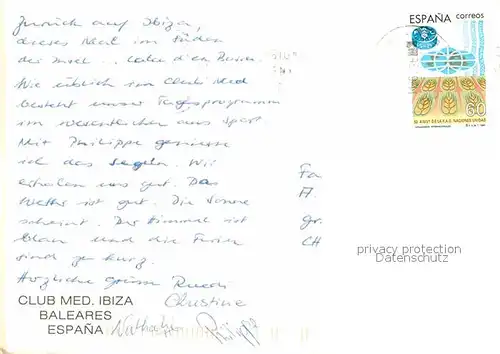 Zurück auf Ibiza,
dieses Mal im Süden
der Insel ... Cala d'en
Wie üblich im Club Med
besteht unser Tagesprogramm
im wesentlichen aus Sport
Mit Philippe geniesse
ich das segeln. Wir
erholen uns gut. Das
Wetter ist gut. Die Sonne
scheint. Der Himmel ist
blau und die Ferien
sind zu kurz.
Herzliche Grüsse Ruedi
Christine
Nathalie Philipp
CLUB MED. IBIZA
BALEARES
ESPAÑA
ESPAÑA correos
60
NACIONES UNIDAS
Fa
A.
gr.
CH
privacy protection
Datenschutz